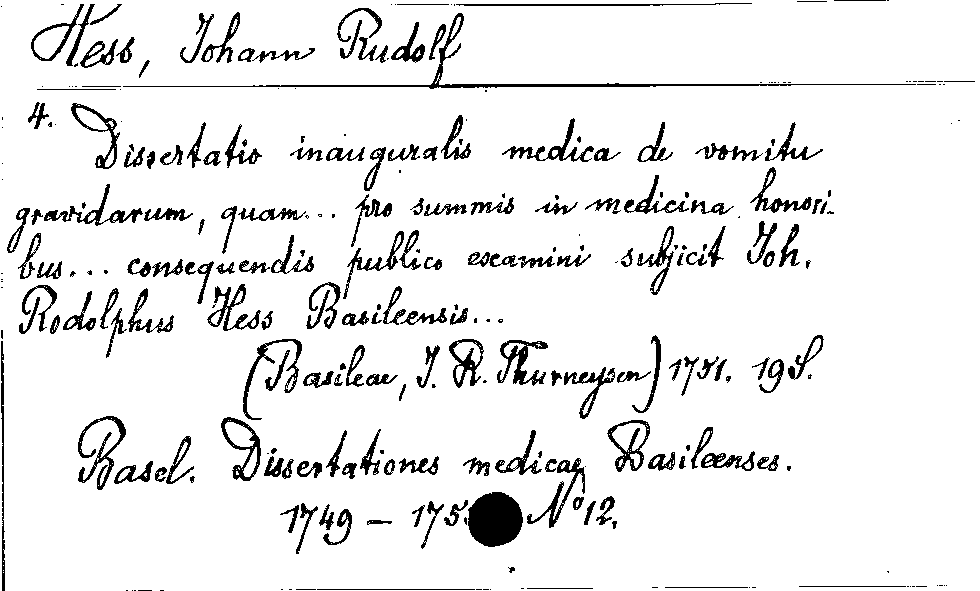 Hess, Johann Rudolf
4.
Dissertatio inauguralis medica de vomitu
gravidarum, quam... pro summis in medicina honori-
bus... consequendis publico examini subjicit Joh.
Rodolphus Hess Basileensis...
(Basileae, J. R. Thurneysen) 1751. 19 S.
Basel. Dissertationes medicae Basileenses.
1749 - 175 No 12.